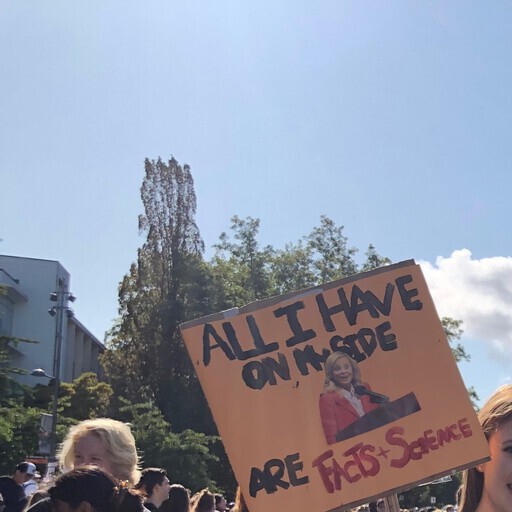 ALL I HAVE
ON MY SIDE
ARE FACTS + SCIENCE